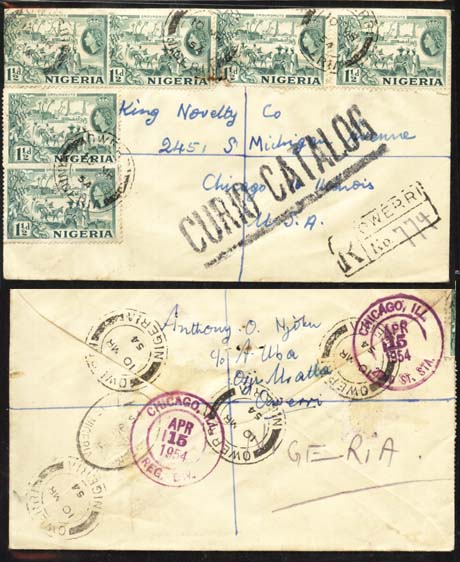 1½d NIGERIA
1½d NIGERIA
1½d NIGERIA
1½d NIGERIA
1½d NIGERIA
1½d NIGERIA
King Novelty Co
2451 S Michigan Avenue
Chicago Illinois
U.S.A.
CURIO CATALOG
R OWERRI
No. 774
Anthony O. Njoku
c/o A. Uba
Owerri
GERIA.
OWERRI NIGERIA
10 MR
54
CHICAGO, ILL.
APR
15
1954
REG. DIV.
CHICAGO, ILL.
APR
15
1954
ST. STA.
OWERRI NIGERIA
10 MR
54
OWERRI NIGERIA
10 MR
54